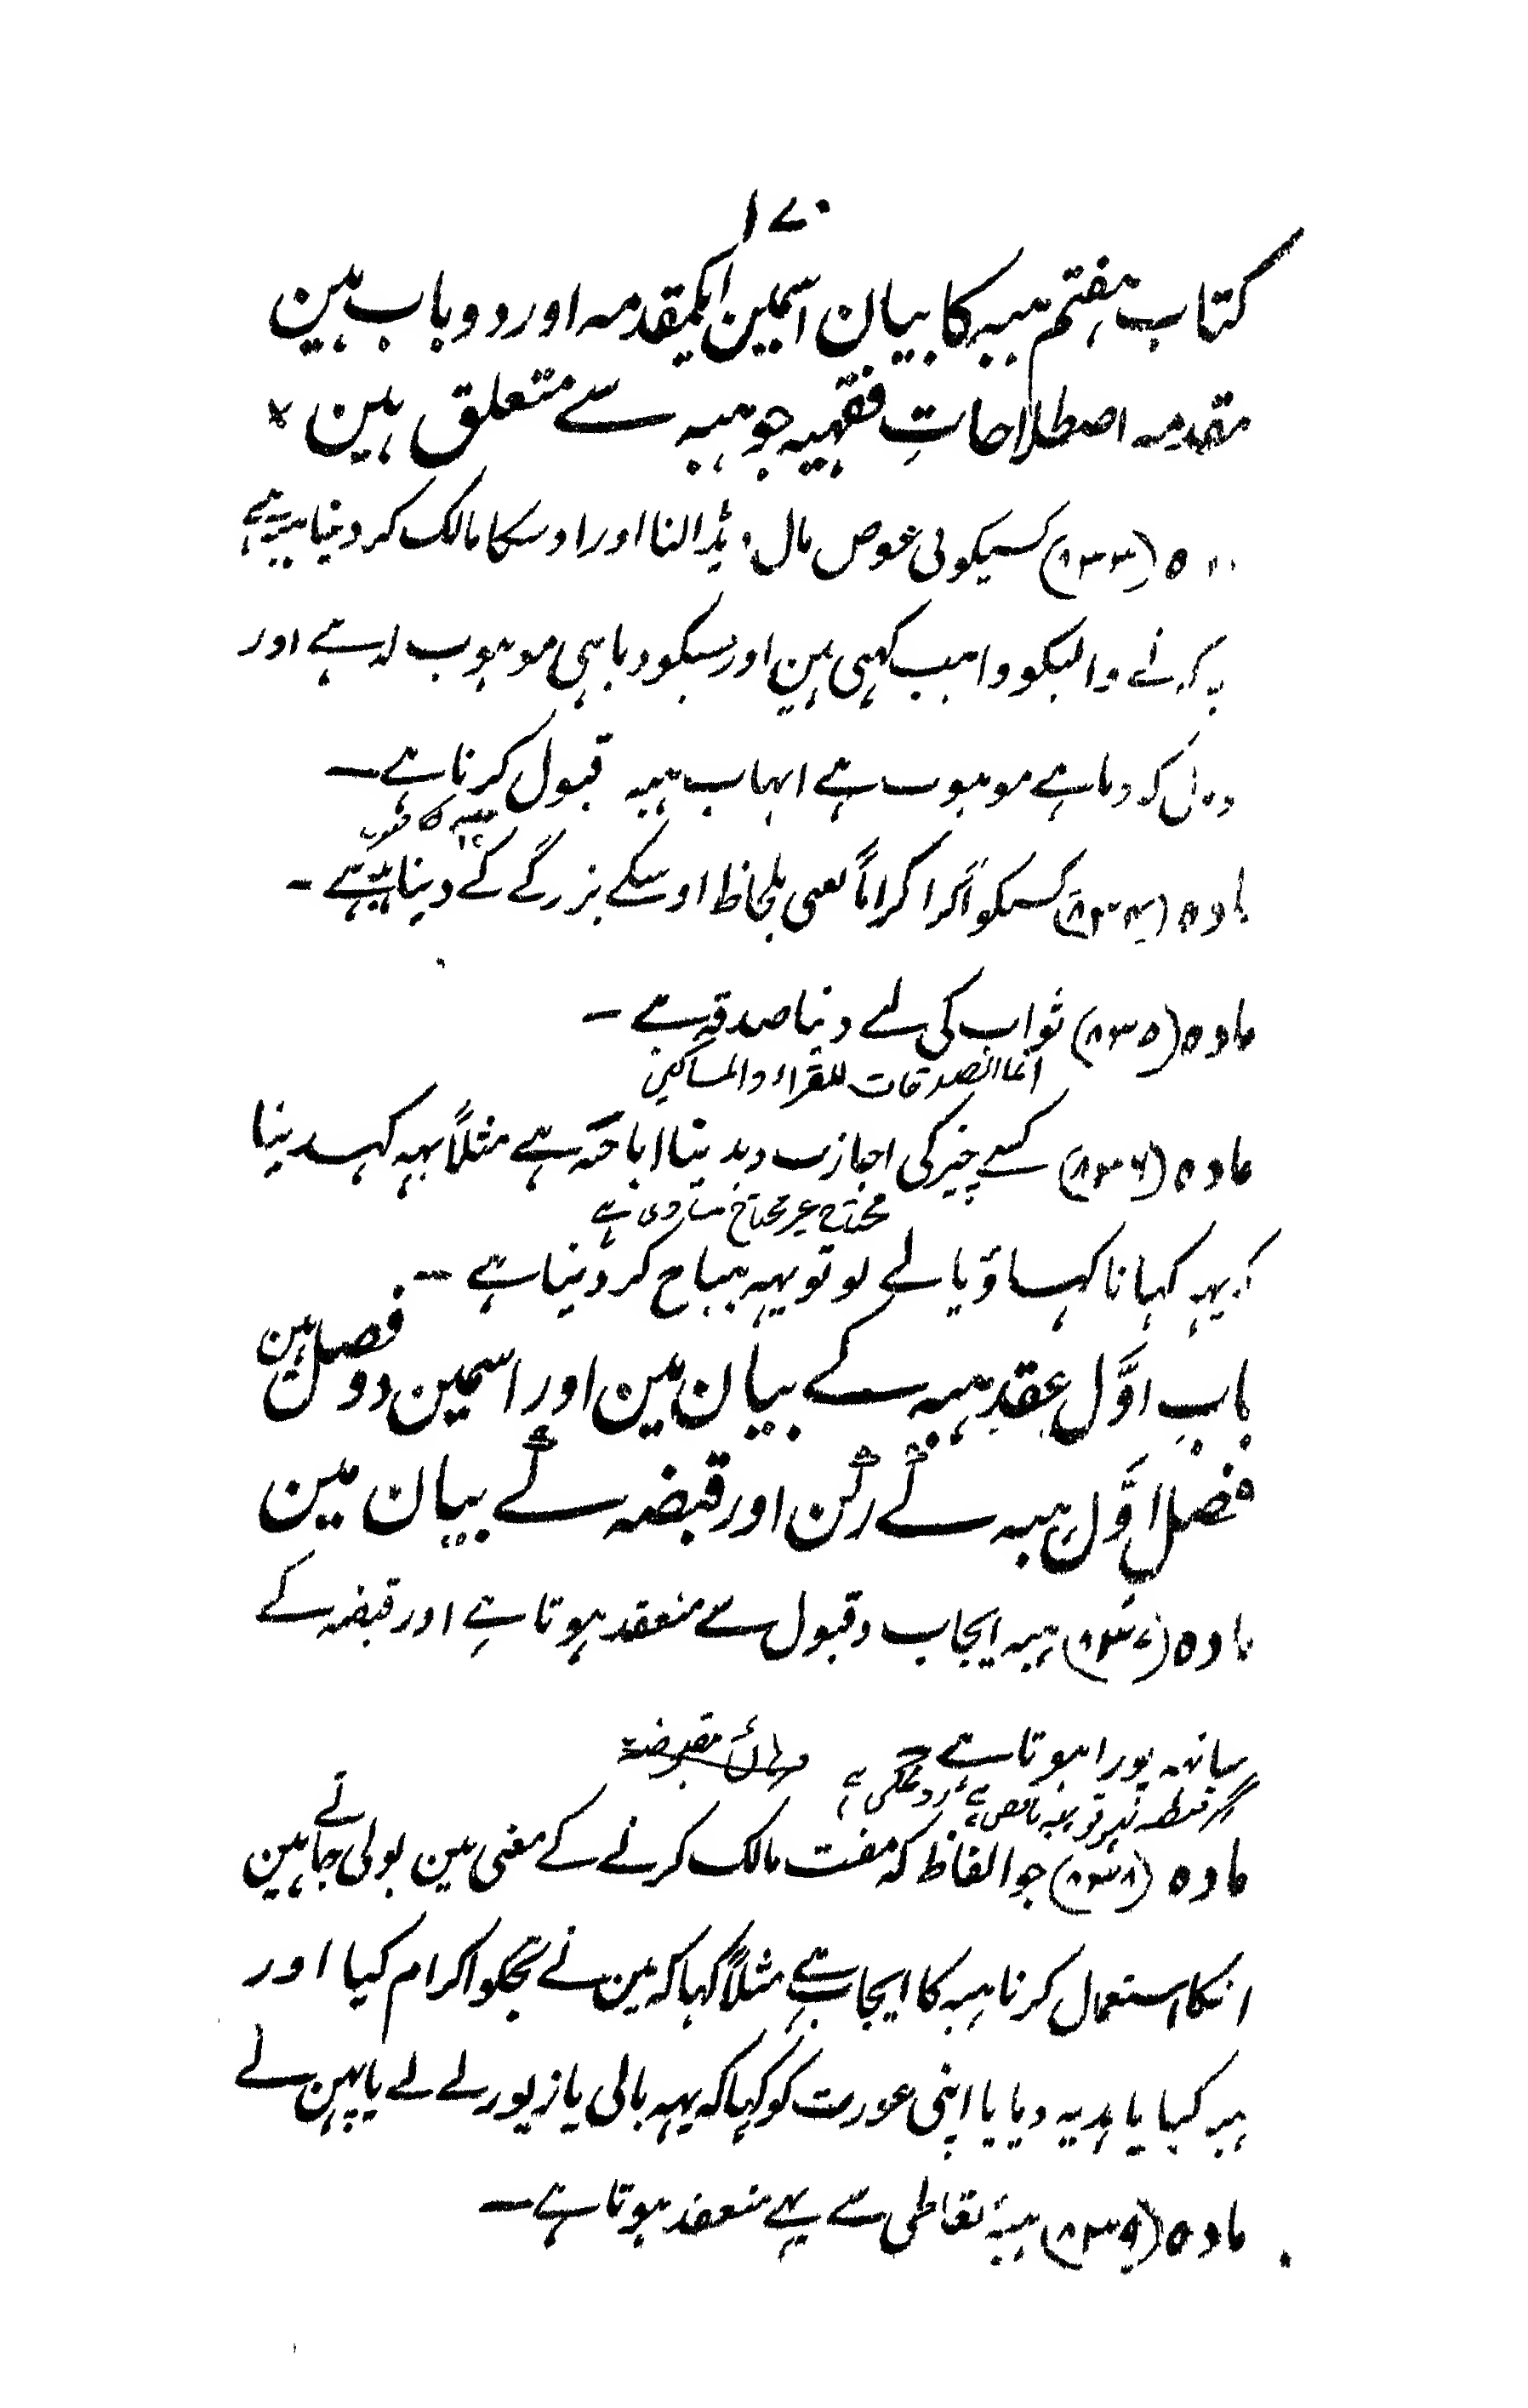 ۱۷۰
کتاب ہفتم ہبہ کا بیان اسمین ایکمقدمہ اور دو باب ہین
مقدمہ اصطلاحاتِ فقہیہ جو ہبہ سے متعلق ہین
(۸۳۳) کسیکو بی عوض مال دیڈالنا اور اوسکا مالک کر دینا ہبہ ہے
کرنے والیکو واہب کہی ہین اور جسکو دیا ہی موہوب لہ ہے اور
موہوب ہے اتہاب ہبہ قبول کرنا ہے ـ
مادہ (۸۳۴) کسیکو اکراماً یعنی بلحاظ اوسکے بزرگے کے دینا ہدیہ ہے ـ
مادہ (۸۳۵) ثواب کی لئے دینا صدقہ ہے ـ
انما الصدقات للفقراء والمساکین
مادہ (۸۳۶) کسے چیز کی اجازت دیدینا اباحتہ ہے مثلاً یہہ کہدینا
محتاج غیر محتاج مساوی ہے
کہ یہہ کہانا کہاؤ یا لے لو تو یہہ مباح کر دینا ہے ـ
بابِ اوّل عقدِ ہبہ کے بیان مین اور اسمین دو فصل ہین
فصل اوّل ہبہ کے رکن اور قبضہ کے بیان مین
مادہ (۸۳۷) ہبہ ایجاب و قبول سے منعقد ہوتا ہے اور قبضہ کے
ساتہہ پورا ہوتا ہے
اگر قبضہ نہو تو ہبہ ناقص ہے
مادہ (۸۳۸) جو الفاظ کہ مفت مالک کرنے کے معنی مین بولی جاتے ہین
انکا استعمال کرنا ہبہ کا ایجاب ہے مثلاً کہا کہ مین نے تجکو اکرام کیا اور
ہبہ کیا یا ہدیہ دیا یا اپنی عورت کو کہا کہ یہہ بالی یا زیور لے لے یا پہن لے
مادہ (۸۳۹) ہبہ تعاطی سے بہے منعقد ہوتا ہے ـ